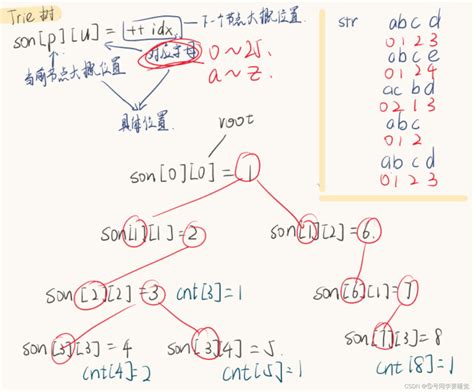 Trie 树
son[p][u] = ++ idx. 下一个节点大概位置.
当前节点大概位置 对应字母 0~25.
a~z.
具体位置.
root
son[0][0] = 1
son[1][1] = 2 son[1][2] = 6.
son[2][2] = 3 cnt[3]=1 son[6][1] = 7
son[3][3] = 4 son[3][4] = 5. son[7][3] = 8
cnt[4]=2 cnt[5]=1 cnt[8]=1
str abcd
0123
abce
0124
acbd
0213
abc
012
abcd
0123